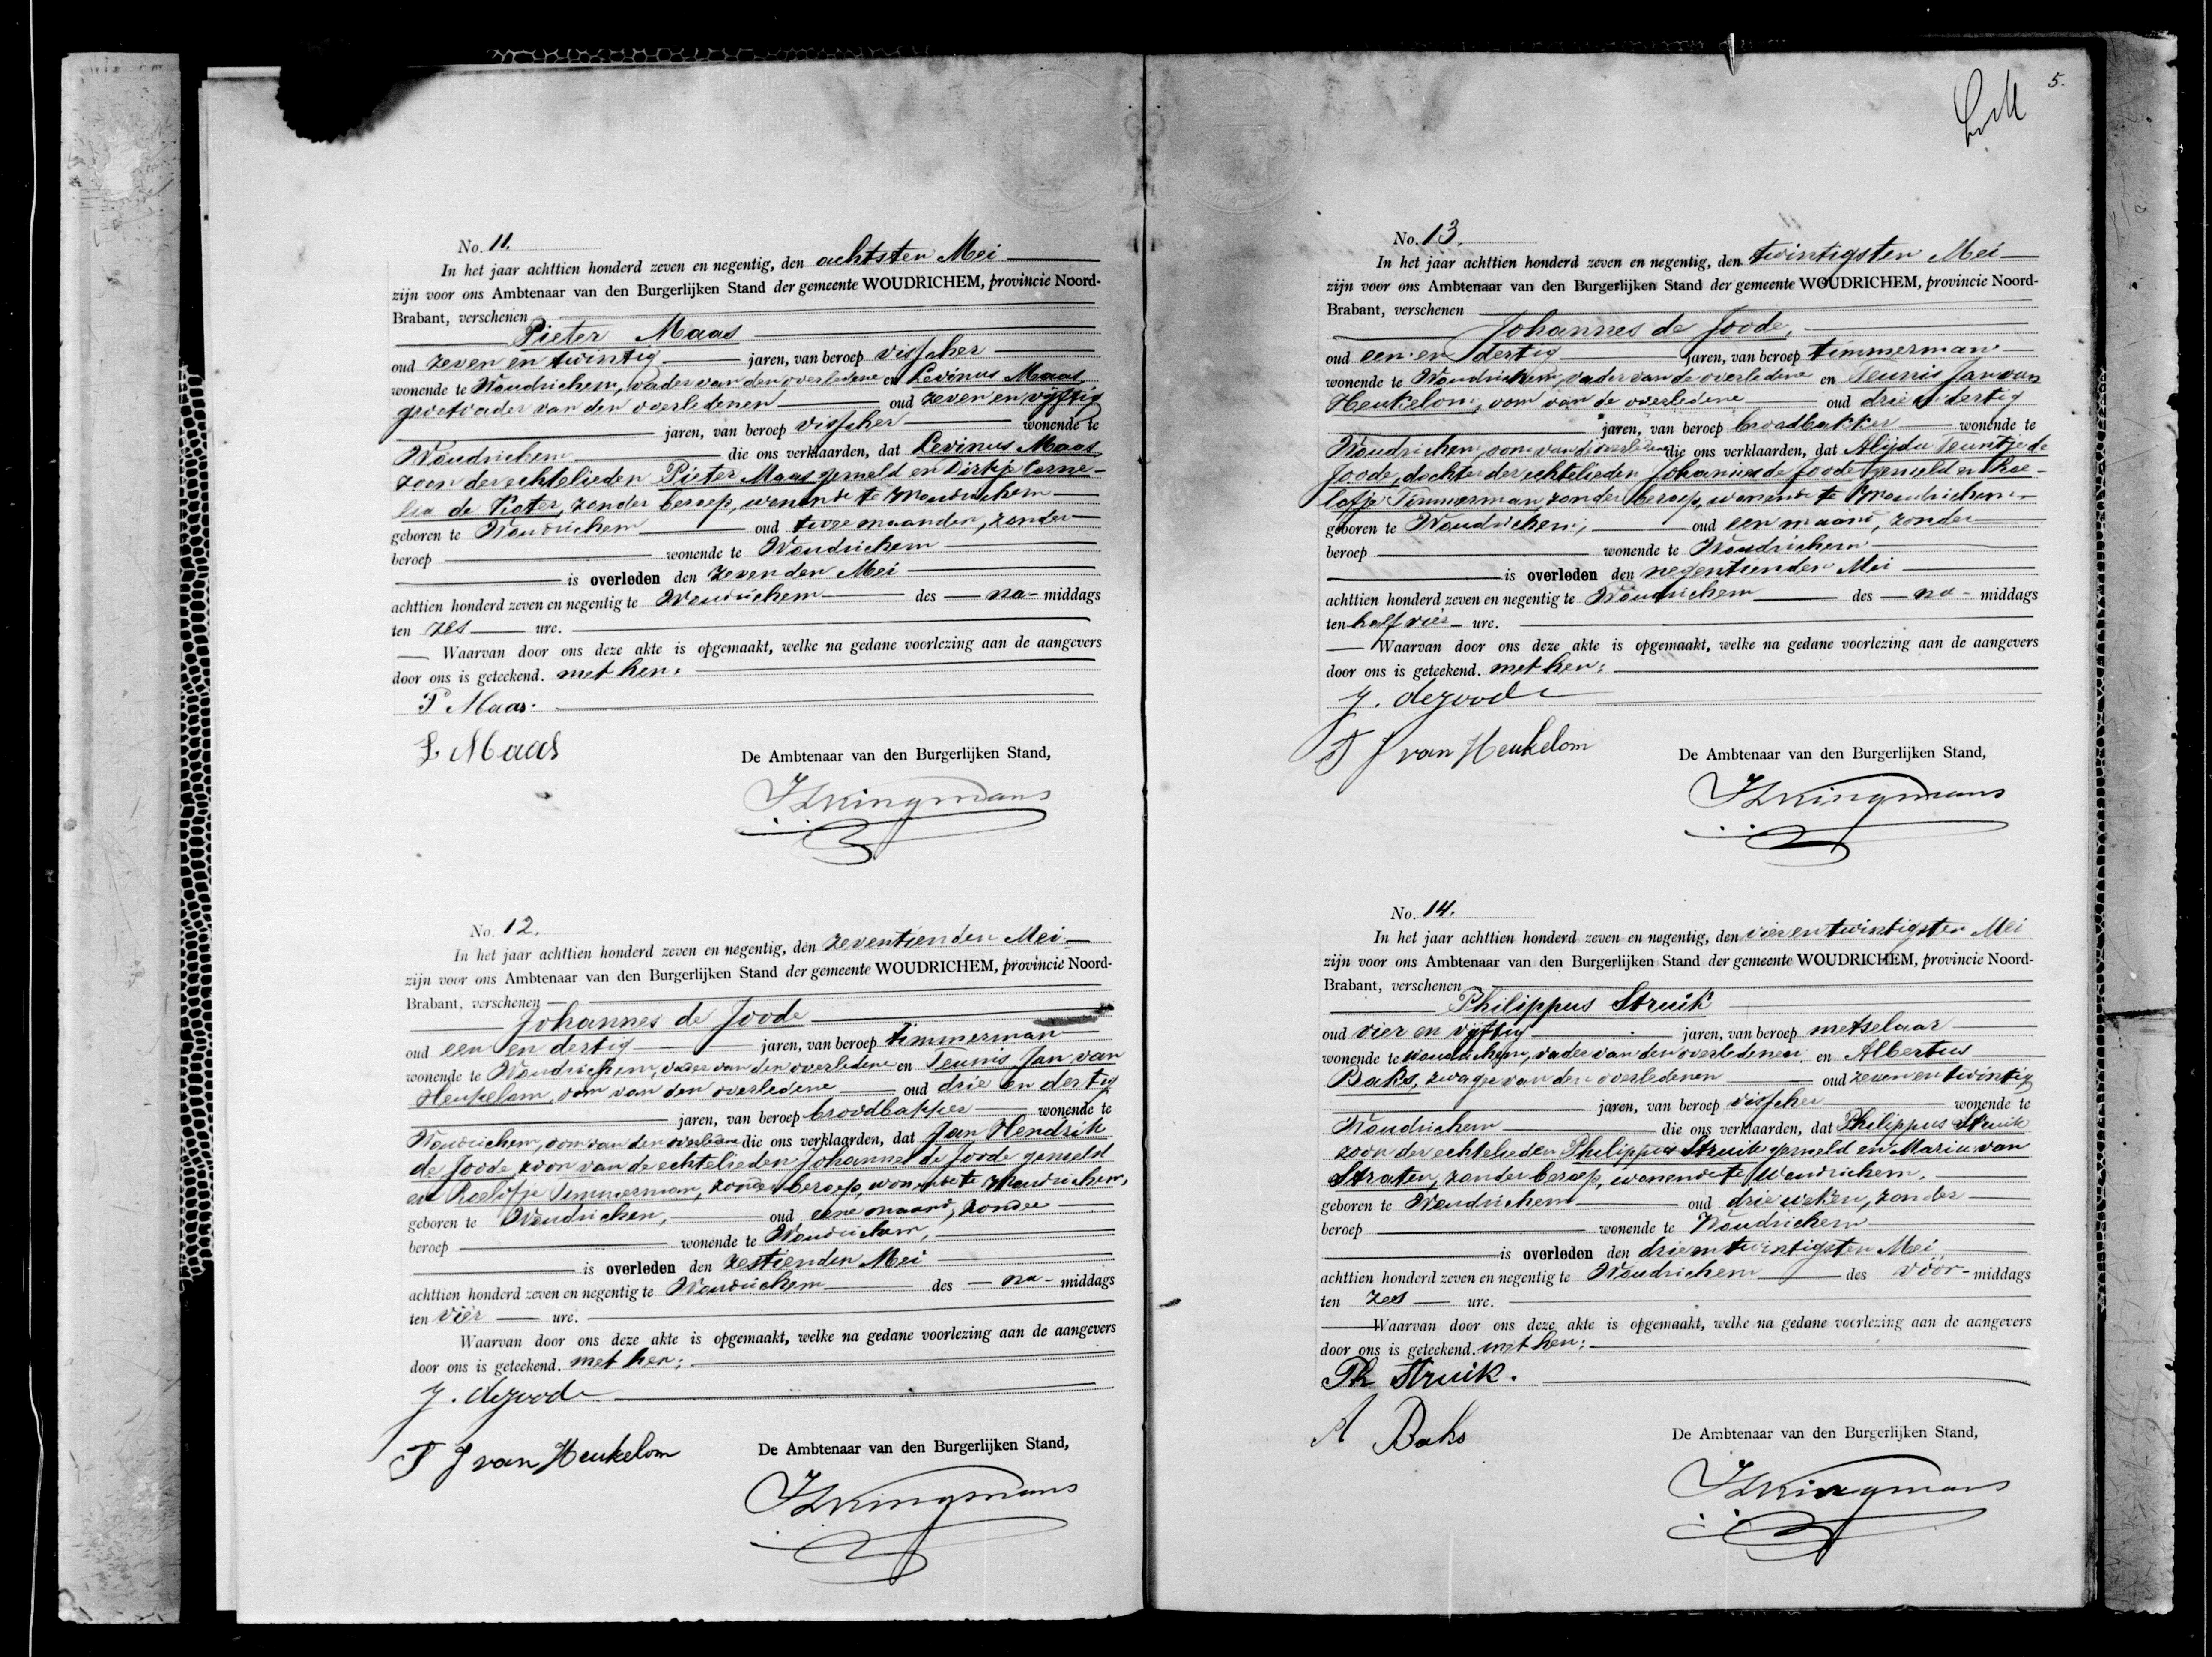 No. 11.
In het jaar achttien honderd zeven en negentig, den achtsten Mei
zijn voor ons Ambtenaar van den Burgerlijken Stand der gemeente WOUDRICHEM, provincie Noord-
Brabant, verschenen
Pieter Maas
oud zeven en twintig jaren, van beroep visscher
wonende te Woudrichem, vader van den overledene en Levinus Maas
grootvader van den overledenen oud zeven en vijftig
jaren, van beroep visscher wonende te
Woudrichem die ons verklaarden, dat Levinus Maas
zoon der echtelieden Pieter Maas gemeld en Dirkje Corne-
lia de Pieter, zonder beroep, wonende te Woudrichem
geboren te Woudrichem oud twee maanden, zonder
beroep wonende te Woudrichem
is overleden den zevenden Mei
achttien honderd zeven en negentig te Woudrichem des na- middags
ten zes ure.
Waarvan door ons deze akte is opgemaakt, welke na gedane voorlezing aan de aangevers
door ons is geteekend. met hen.
P Maas.
L Maas
De Ambtenaar van den Burgerlijken Stand,
No. 12.
In het jaar achttien honderd zeven en negentig, den zeventienden Mei
zijn voor ons Ambtenaar van den Burgerlijken Stand der gemeente WOUDRICHEM, provincie Noord-
Brabant, verschenen
Johannes de Joode
oud een en dertig jaren, van beroep timmerman
wonende te Woudrichem, vader van den overledene en Teunis Jan van
Heukelom, oom van den overledene oud drie en dertig
jaren, van beroep broodbakker wonende te
Woudrichem, oom van den overledene die ons verklaarden, dat Jan Hendrik
de Joode, zoon van de echtelieden Johannes de Joode gemeld
en Roelofje Timmerman, zonder beroep, wonende te Woudrichem,
geboren te Woudrichem, oud eene maand, zonder
beroep wonende te Woudrichem,
is overleden den zestienden Mei
achttien honderd zeven en negentig te Woudrichem des na- middags
ten vier ure.
Waarvan door ons deze akte is opgemaakt, welke na gedane voorlezing aan de aangevers
door ons is geteekend. met hen:
J. de Joode
T J van Heukelom
De Ambtenaar van den Burgerlijken Stand,
5.
No. 13.
In het jaar achttien honderd zeven en negentig, den twintigsten Mei
zijn voor ons Ambtenaar van den Burgerlijken Stand der gemeente WOUDRICHEM, provincie Noord-
Brabant, verschenen
Johannes de Joode,
oud een en dertig jaren, van beroep timmerman
wonende te Woudrichem, vader van de overledene en Teunis Jan van
Heukelom, oom van de overledene oud drie en dertig
jaren, van beroep broodbakker wonende te
Woudrichem, oom van de overledene die ons verklaarden, dat Alijda Teuntje de
Joode, dochter der echtelieden Johannes de Joode gemeld en Roe-
lofje Timmerman, zonder beroep, wonende te Woudrichem
geboren te Woudrichem, oud een maand, zonder
beroep wonende te Woudrichem
is overleden den negentienden Mei
achttien honderd zeven en negentig te Woudrichem des na- middags
ten half vier ure.
Waarvan door ons deze akte is opgemaakt, welke na gedane voorlezing aan de aangevers
door ons is geteekend. met hen:
J. de Joode
T J van Heukelom
De Ambtenaar van den Burgerlijken Stand,
No. 14.
In het jaar achttien honderd zeven en negentig, den vier en twintigsten Mei
zijn voor ons Ambtenaar van den Burgerlijken Stand der gemeente WOUDRICHEM, provincie Noord-
Brabant, verschenen
Philippus Struik
oud vier en vijftig jaren, van beroep metselaar
wonende te Woudrichem, vader van den overledenen en Albertus
Baks, zwager van den overledenen oud zeven en twintig
jaren, van beroep visscher wonende te
Woudrichem die ons verklaarden, dat Philippus Struik
zoon der echtelieden Philippus Struik gemeld en Maria van
Straten, zonder beroep, wonende te Woudrichem,
geboren te Woudrichem oud drie weken, zonder
beroep wonende te Woudrichem
is overleden den drie en twintigsten Mei
achttien honderd zeven en negentig te Woudrichem des voor- middags
ten zes ure.
Waarvan door ons deze akte is opgemaakt, welke na gedane voorlezing aan de aangevers
door ons is geteekend. met hen:
Ph Struik.
A Baks
De Ambtenaar van den Burgerlijken Stand,